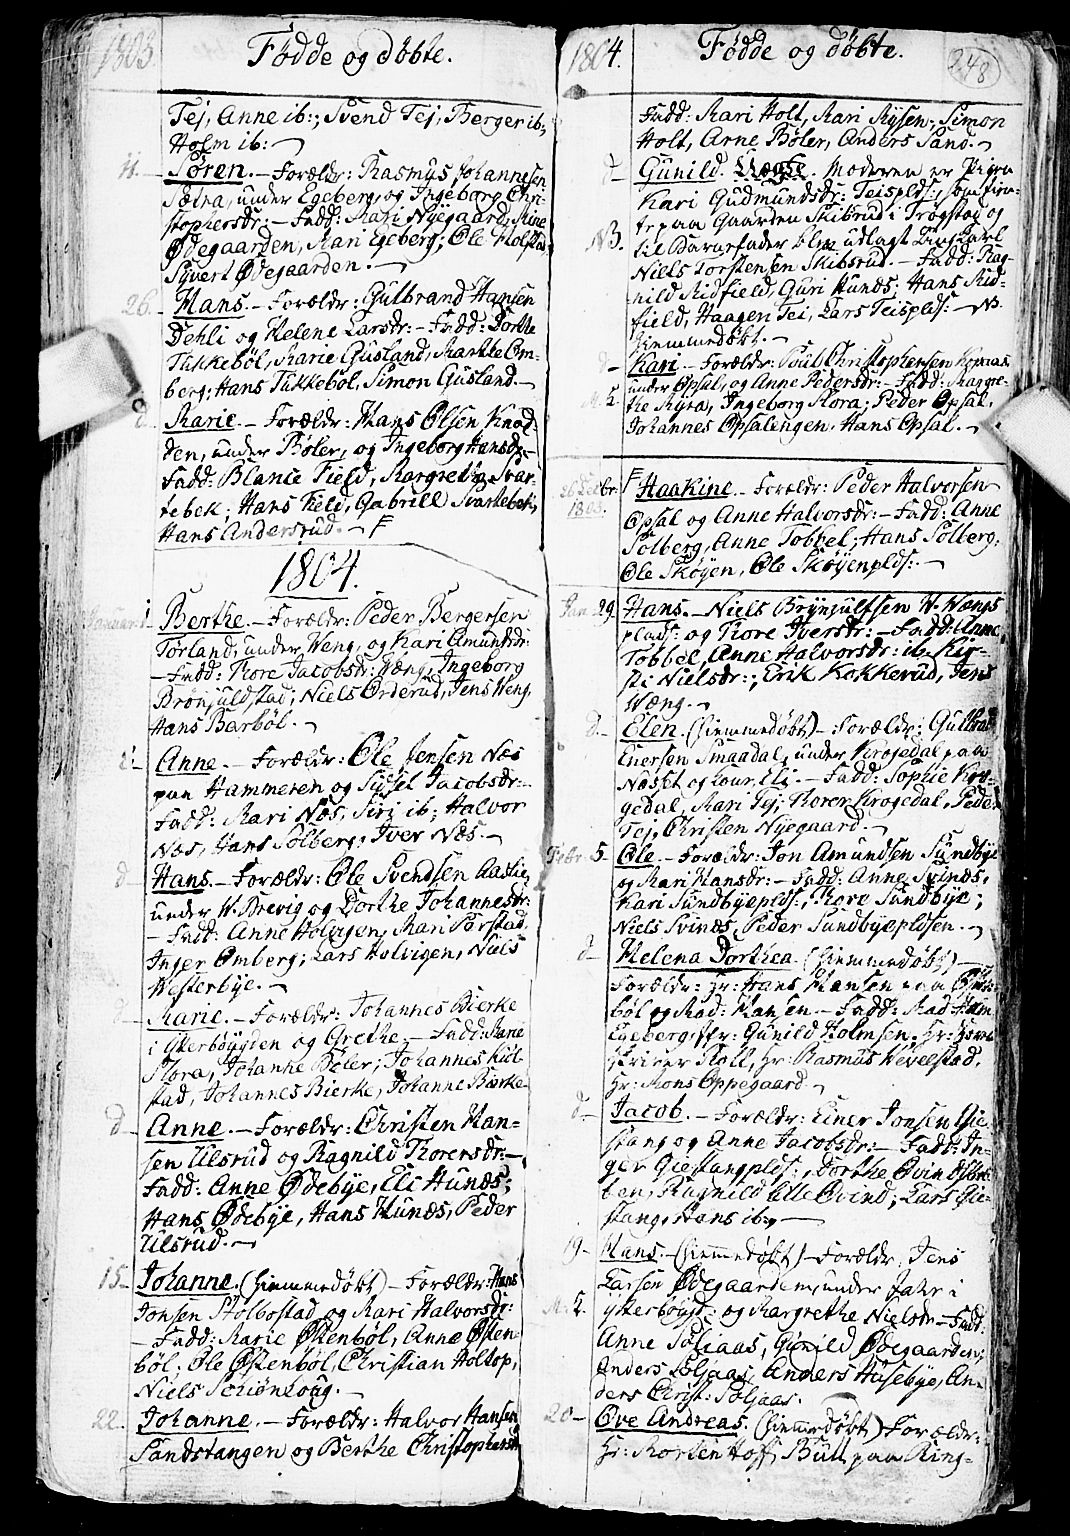 1803
Fødde og døbte.
Tej, Anne ib:; Svend Tej, Berger ib;
Holm ib:
11. Søren. – Forældr: Rasmus Johannesen
Sætra, under Egeberg, og Ingeborg Chri-
stophersdr: – Fadd: Kari Nyegaard,
Ødegaarden, Kari Egeberg; Ole Holstad,
Syvert Ødegaarden. –
26. Hans. – Forældr: Gulbrand Hansen
Dehli og Helene Larsdr: – Fadd: Dorthe
Tukkebøl, Marie Gusland, Marthe Om-
berg; Hans Tukkebøl, Simon Gusland. –
d Marie. – Forældr: Hans Olsen Knod-
den, under Bøler, og Ingeborg Hansdr. –
Fadd: Blance Field, Margrethe Svar-
tebek; Hans Field, Gabriel Svartebek,
Hans Andersrud. –
1804.
Januar 1. Berthe. – Forældr: Peder Bergersen
Torland, under Weng, og Kari Amundsdr:
– Fadd: Thore Jacobsdr: Wæng, Ingeborg
Brønjuldstad; Niels Orderud, Jens Weng,
Hans Barbøl. –
d – Anne. – Forældr: Ole Jensen Næs
paa Hammeren og Sidsel Jacobsdr: –
Fadd: Kari Næs, Siri ib; Halvor
Næs, Hans Solberg; Iver Næs. –
d – Hans. – Forældr: Ole Svendsen Aaslie,
under W. Brevig og Dorthe Johannesdr:
– Fadd: Anne Holvigen, Mari Parstad,
Inger Omberg; Lars Holvigen, Niels
Westerbye. –
d – Marie. – Forældr: Johannes Bierke
i Ytterbøygden og Grethe – Fadd: Marie
Flora, Johanne Bøler; Johannes Kul-
stad, Johannes Bierke, Johanne Bierke
d – Anne. – Forældr: Christen Han-
sen Ulsrud og Ragnild Thorersdr: –
Fadd: Anne Ødebye, Eli Hunæs;
Hans Ødebye, Hans Hunæs, Peder
Ulsrud. –
15 – Johanne. (hiemmedøbt) – Forældr: Hans
Jonsen Stolbostad og Kari Halvorsdr:
– Fadd: Marie Østenbøl, Anne Østen-
bøl. Ole Østenbøl, Christian Holtop,
Niels Schiønhoug. –
22. Johanne. – Forældr: Halvor Hansen
Sandstangen og Berthe Christophersdr
1804.
Fødde og døbte.
248
Fadd: Mari Holt, Mari Rysen; Simon
Holt, Arne Bøler, Anders Sand. –
d – Gunild. Uægte. Moderen er Pigen
Kari Gudmundsdr: Teispldr:, som tien-
te paa Gaarden Skibsrud i Trøgstad og
NB. til Barnefader blev udlagt
Niels Torstensen Skibsrud. – Fadd: Rag-
nild Ridfield, Guri Hunæs; Hans Rid-
field, Haagen Tei, Lars Teisplds: – NB.
hiemmedøbt. –
d – Kari – Forældr: Poul Christophersen
under Opsal, og Anne Pedersdr: – Fadd: Maggre-
the Myra, Ingeborg Flora; Peder Opsal,
Johannes Opsalengen. Hans Opsal. –
26 Decbr 1803. Haakine. – Forældr: Peder Halvorsen
Opsal og Anne Halvorsdr: – Fadd: Anne
Solberg, Anne Tobbel; Hans Solberg;
Ole Skøyen, Ole Skøyenplds: –
Jan. 29. Hans. – Niels Brynjulfsen W. Wængs
plads: og Thore Iversdr: – Fadd: Anne
Tobbel, Anne Halvorsdr: ib. Kir-
sti Nielsdr:; Erik Kakkerud, Jens
Wæng. –
d. – Elen. (hiemmedøbt) – Forældr: Gulbra
Enersen Smaadal, under Krogedal paa
Næsset og kone, Eli. – Fadd: Sophie Kro-
gedal, Mari Tej; Thorer Krogedal, Peder
Tej, Christen Nyegaard. –
Febr. 5. Ole. – Forældr: Jon Amundsen Sundbye
og Mari Hansdr: – Fadd: Anne Svinæs,
Kari Sundbyeplds:, Thore Sundbye;
Niels Svinæs, Peder Sundbyepldsen. –
d – Helena Dorthea. (hiemmedøbt) –
Forældr: Hr: Hans Hansen paa
bøl og Mad: Hansen. – Fadd: Mad:
Egeberg; Gunild Holmsen. Hr:
skriver Hr: Rasmus Wevelstad,
Hr: Mons Oppegaard –
d – Jacob. – Forældr: Einer Jonsen Gie-
stang og Anne Jacobsdr: – Fadd: In-
ger Giestangplds:, Dorthe Øvind
Ragnild lille Øvind; Lars Gie-
stang, Hans ib: –
19 – Hans. (hiemmedøbt) – Forældr: Jens
Larsen Ødegaarden, under Fahr i
Ytterbøygd: og Margrethe Nielsdr – Fadd:
Anne Soliaas, Gunild Ødegaarden;
Anders Soljaas, Anders Husebye, An-
ders Christ: Soljaas.
20 – Ove Andreas. (hiemmedøbt) Forældr:
Hr: Morten Hoff, Bull paa Ring-